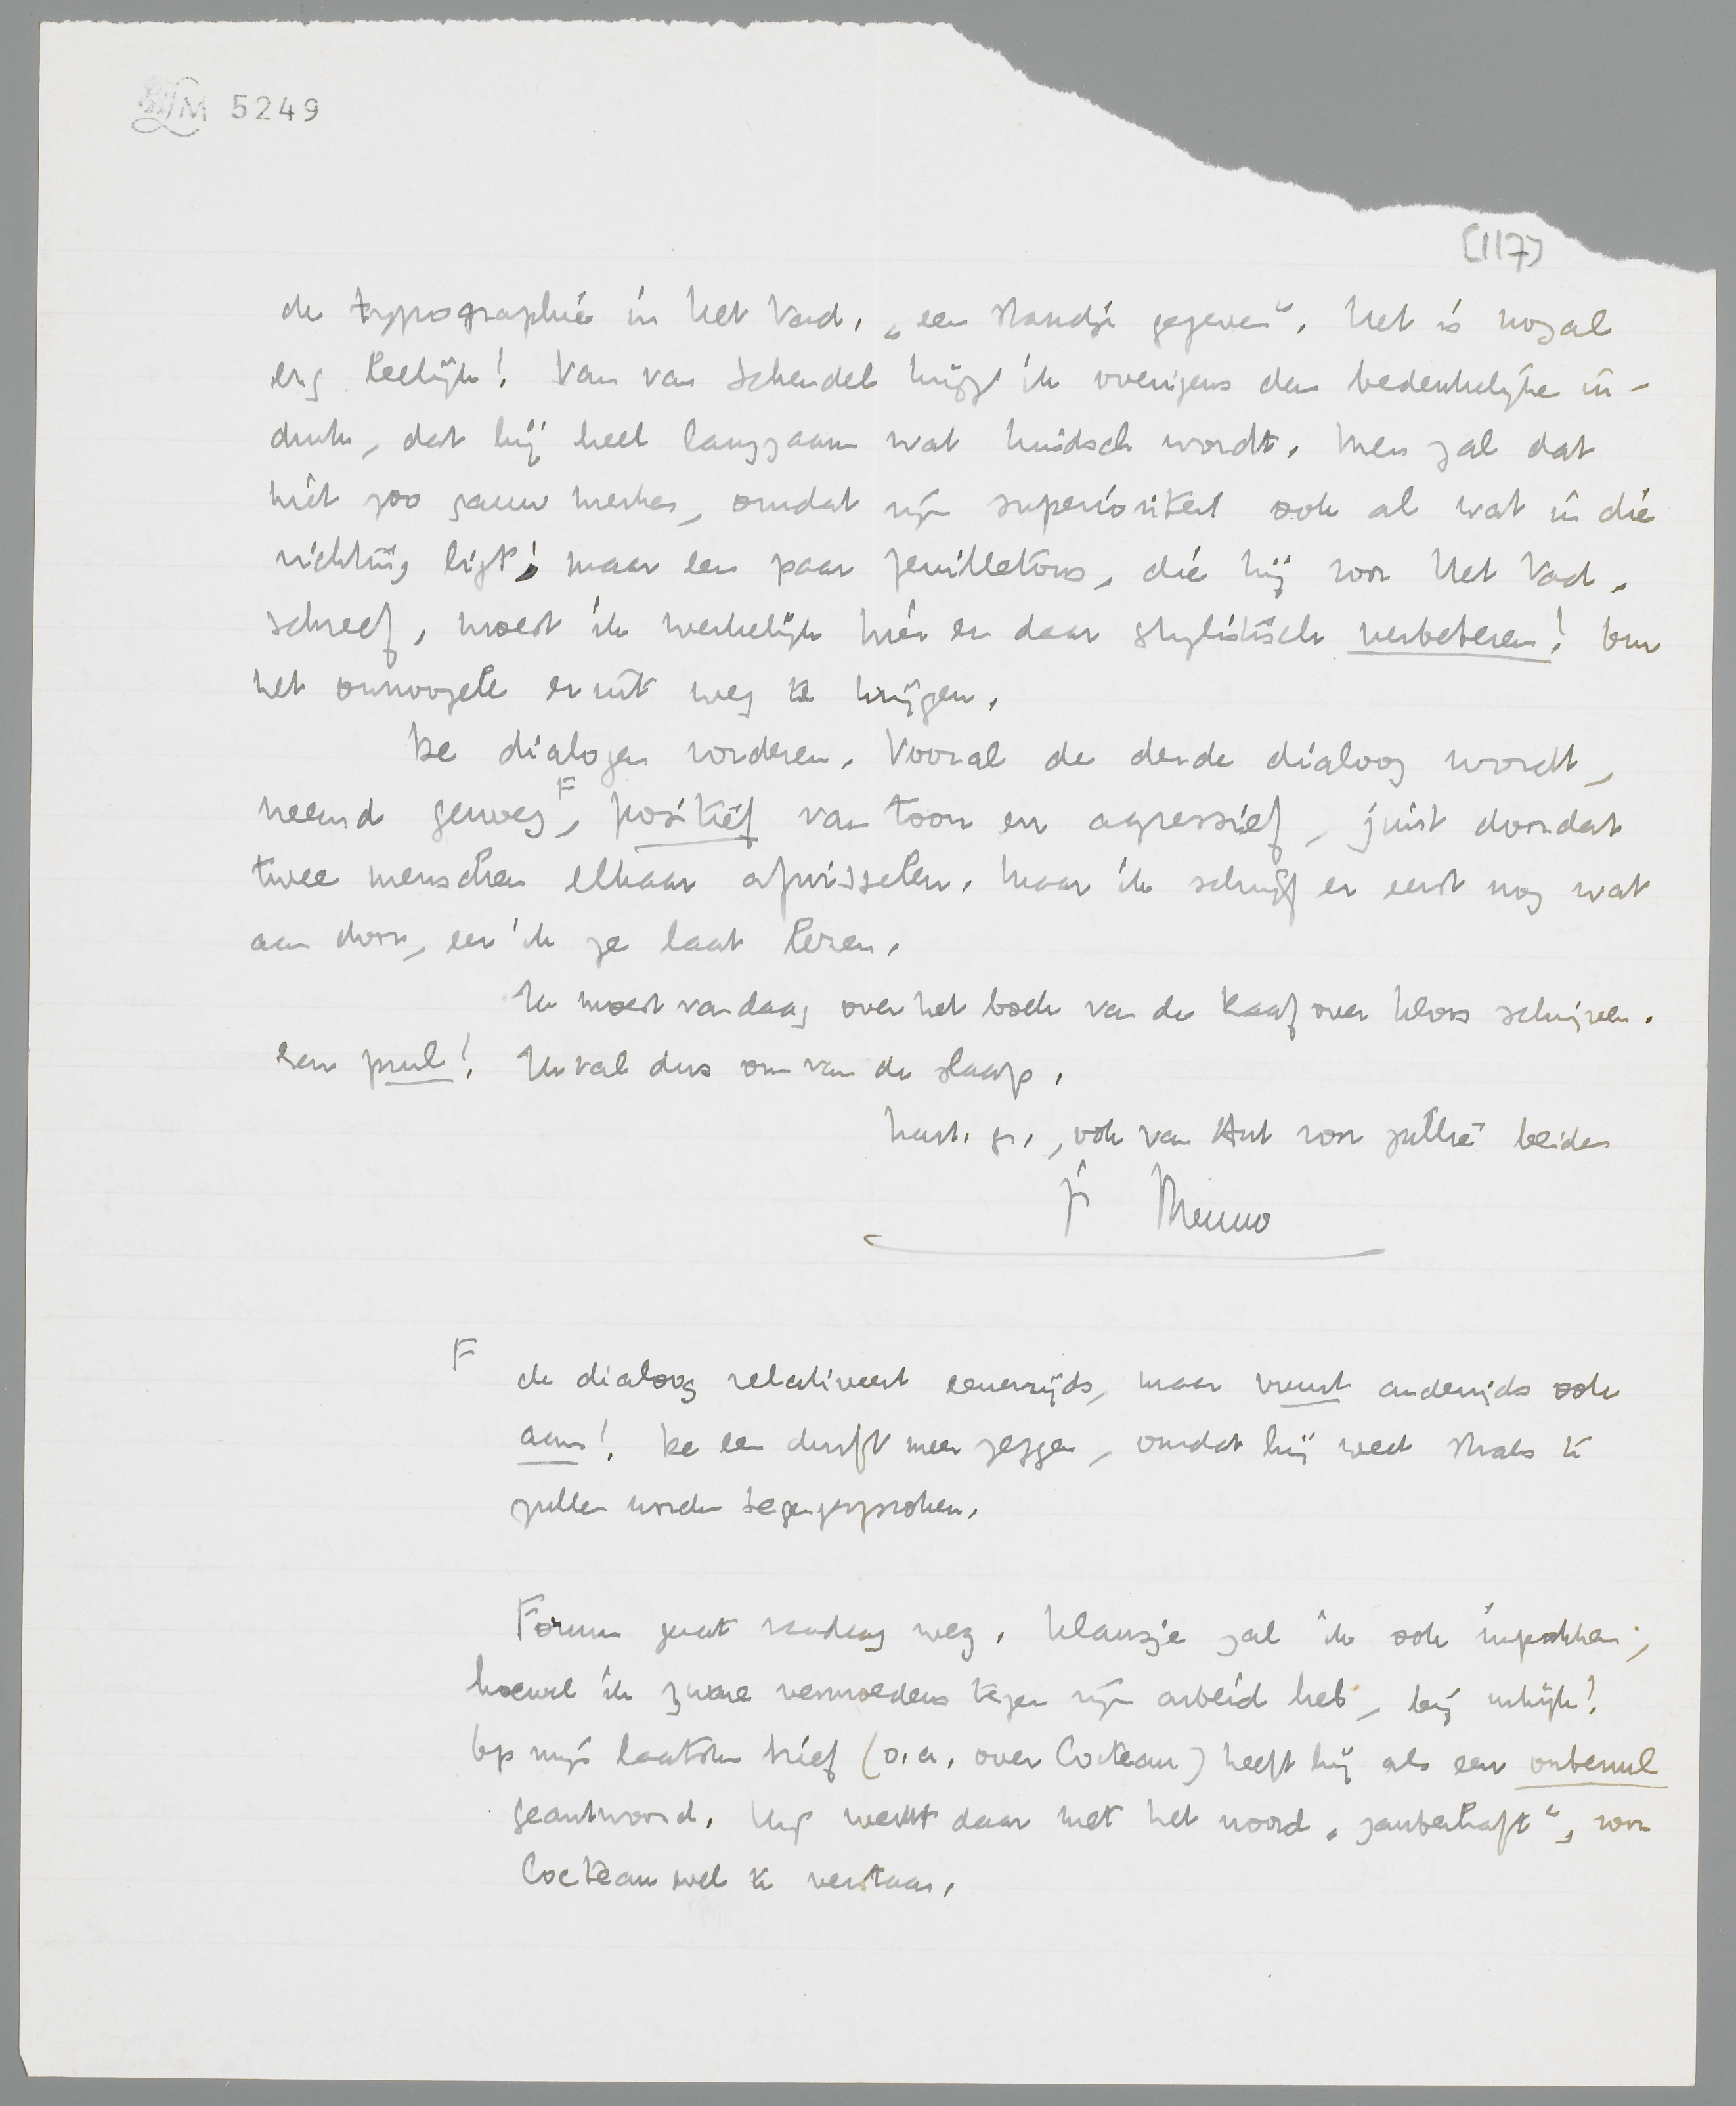 LM 5249
[117]
de typographie in Het Vad. „een standje gegeven". Het is nogal
erg leelijk! Van van Schendel krijg ik overigens den bedenkelijke in-
druk, dat hij heel langzaam wat kindsch wordt. Men zal dat
niet zoo gauw merken, omdat zijn superioriteit ook al wat in die
richting ligt; maar een paar feuilletons, die hij voor Het Vad.
schreef, moest ik werkelijk hier en daar stylistisch verbeteren! Om
het onnoozele eruit weg te krijgen.
De dialogen vorderen. Vooral de derde dialoog wordt,
vreemd genoeg F, positief van toon en agressief, juist doordat
twee menschen elkaar afwisselen. Maar ik schrijf er eerst nog wat
aan door, eer ik ze laat lezen.
Ik moest vandaag over het boek van de Kaaf over Kloos schrijven.
Een prul! Ik val dus om van de slaap.
Hart. gr., ook van Ant voor jullie beiden
je Menno
F de dialoog relativeert eenerzijds, maar vuurt anderzijds ook
aan! De een durft meer zeggen, omdat hij weet straks te
zullen worden tegengesproken.
Forum gaat vandaag weg. Klausje zal ik ook inpakken;
hoewel ik zware vermoedens tegen zijn arbeid heb, bij inkijk!
Op mijn laatsten brief (o.a. over Cocteau) heeft hij als een onbenul
geantwoord. Hij meent daar met het woord „zauberhaft", voor
Cocteau wel te verstaan.